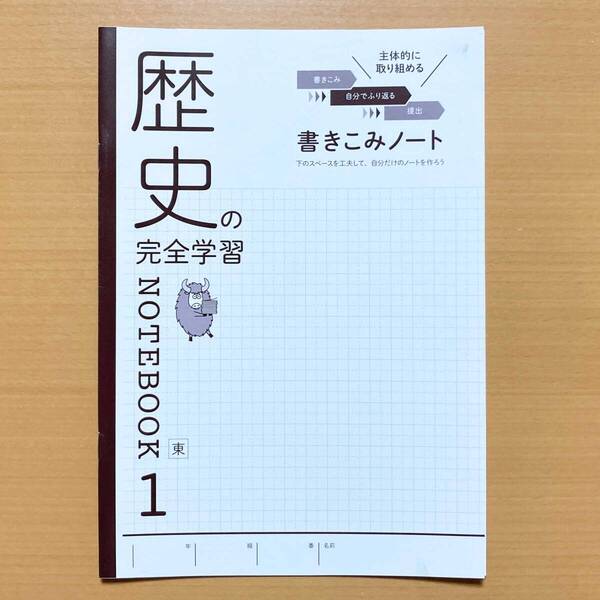 歴史の
完全学習
NOTEBOOK
東
1
主体的に
取り組める
書きこみ
自分でふり返る
提出
書きこみノート
下のスペースを工夫して、自分だけのノートを作ろう
年 組 番 名前